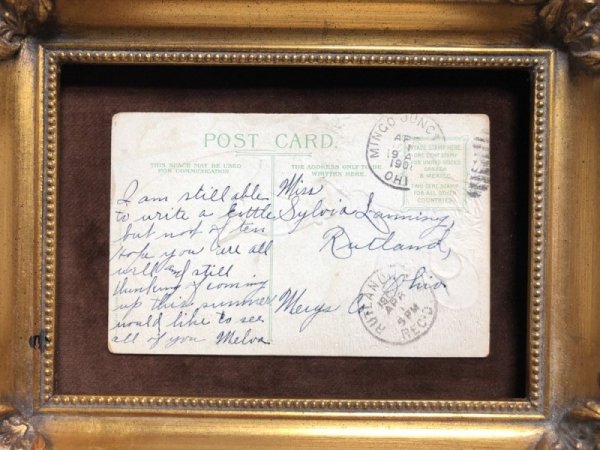 POST CARD.
THIS SPACE MAY BE USED
FOR COMMUNICATION
THE ADDRESS ONLY TO BE
WRITTEN HERE.
PLACE STAMP HERE
ONE CENT STAMP
FOR UNITED STATES
CANADA
& MEXICO.
TWO CENT STAMP
FOR ALL OTHER
COUNTRIES.
MINGO JUNCT
AP
19
190
OHI
I am still able
to write a little
but not of ten
hope you are all
well and still
thinking of coming
up this summer
would like to see
all of you Melva
Miss
Sylvia Lanning,
Rutland,
Ohio
Meigs Co.
RUTLAND
APR
5 PM
REC'D